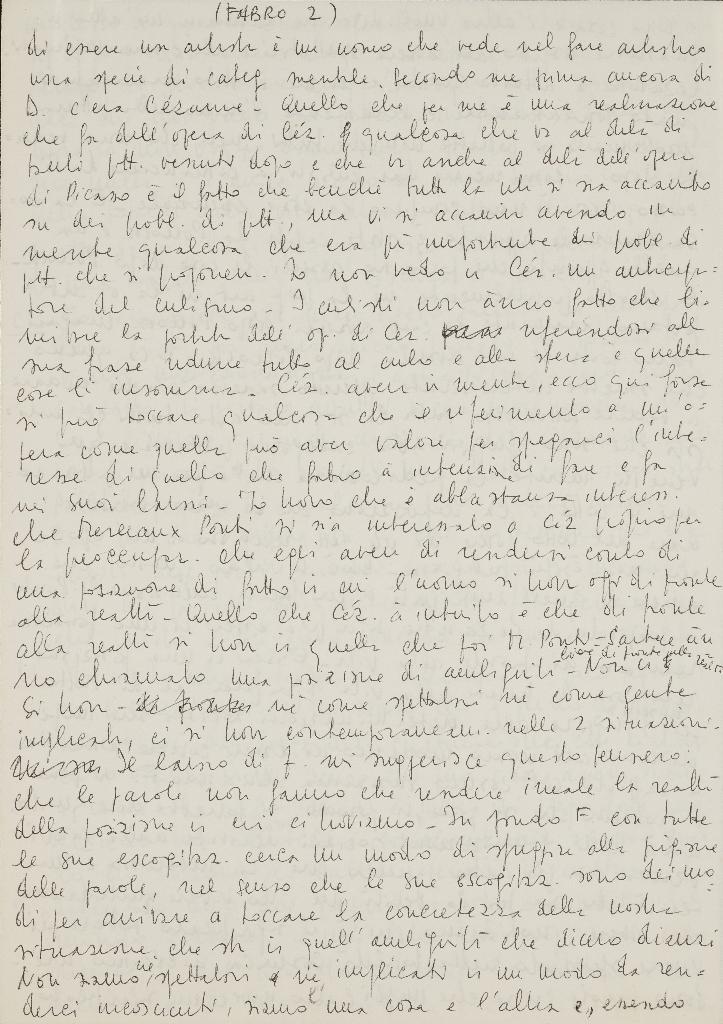 (FABRO 2)
di essere un artista è un uomo che vede nel fare artistico
una specie di categ. mentale. Secondo me prima ancora di
D. c'era Cézanne - Quello che per me è una realizzazione
che fa dell'opera di Céz. qualcosa che va al di là di
tanti pitt. venuti dopo e che va anche al di là dell'opera
di Picasso è il fatto che benché tutta la vita si sia accanito
su dei probl. di pitt., ma vi si accanin avendo in
mente qualcosa che era più importante dei probl. di
pitt. che si poponeva. Io non vedo in Céz. un anticipa-
tore del cubismo - I cubisti non ànno fatto che li-
mitare la portata dell'op. di Céz. riferendosi alla
sua frase ridurre tutto al cubo e alla sfera e quelle
cose lì insomma - Céz. aveva in mente, ecco qui forse
si può toccare qualcosa che è riferimento a un'o-
pera come quella può aver valore per spiegarci l'inte-
resse di quello che Fabro à intenzione di fare e fa
nei suoi lavori - Io trovo che è abbastanza interess.
che Merleaux Ponti si sia interessato a Céz proprio per
la preoccupaz. che egli aveva di rendersi conto di
una posizione di fatto in cui l'uomo si trova oggi di fronte
alla realtà - Quello che Céz. à intuito è che di fronte
alla realtà si trova in quella che poi M. Ponti - Sartre àn
no chiamato una posizione di ambiguità - Non ci si
trova di fronte alla realtà
si trova - né come spettatori né come gente
implicata, ci si trova contemporaneam. nelle 2 situazioni -
Il lavoro di F. mi suggerisce questo pensiero:
che le parole non fanno che rendere irreale la realtà
della posizione in cui ci troviamo - In fondo F con tutte
le sue escogitaz. cerca un modo di sfuggire alla prigione
delle parole, nel senso che le sue escogitaz. sono dei mo-
di per arrivare a toccare la concretezza della nostra
situazione che sta in quell'ambiguità che dicevo dianzi
Non siamo né spettatori né implicati in un modo da ren-
derci incoscienti, siamo l'una cosa e l'altra e, essendo